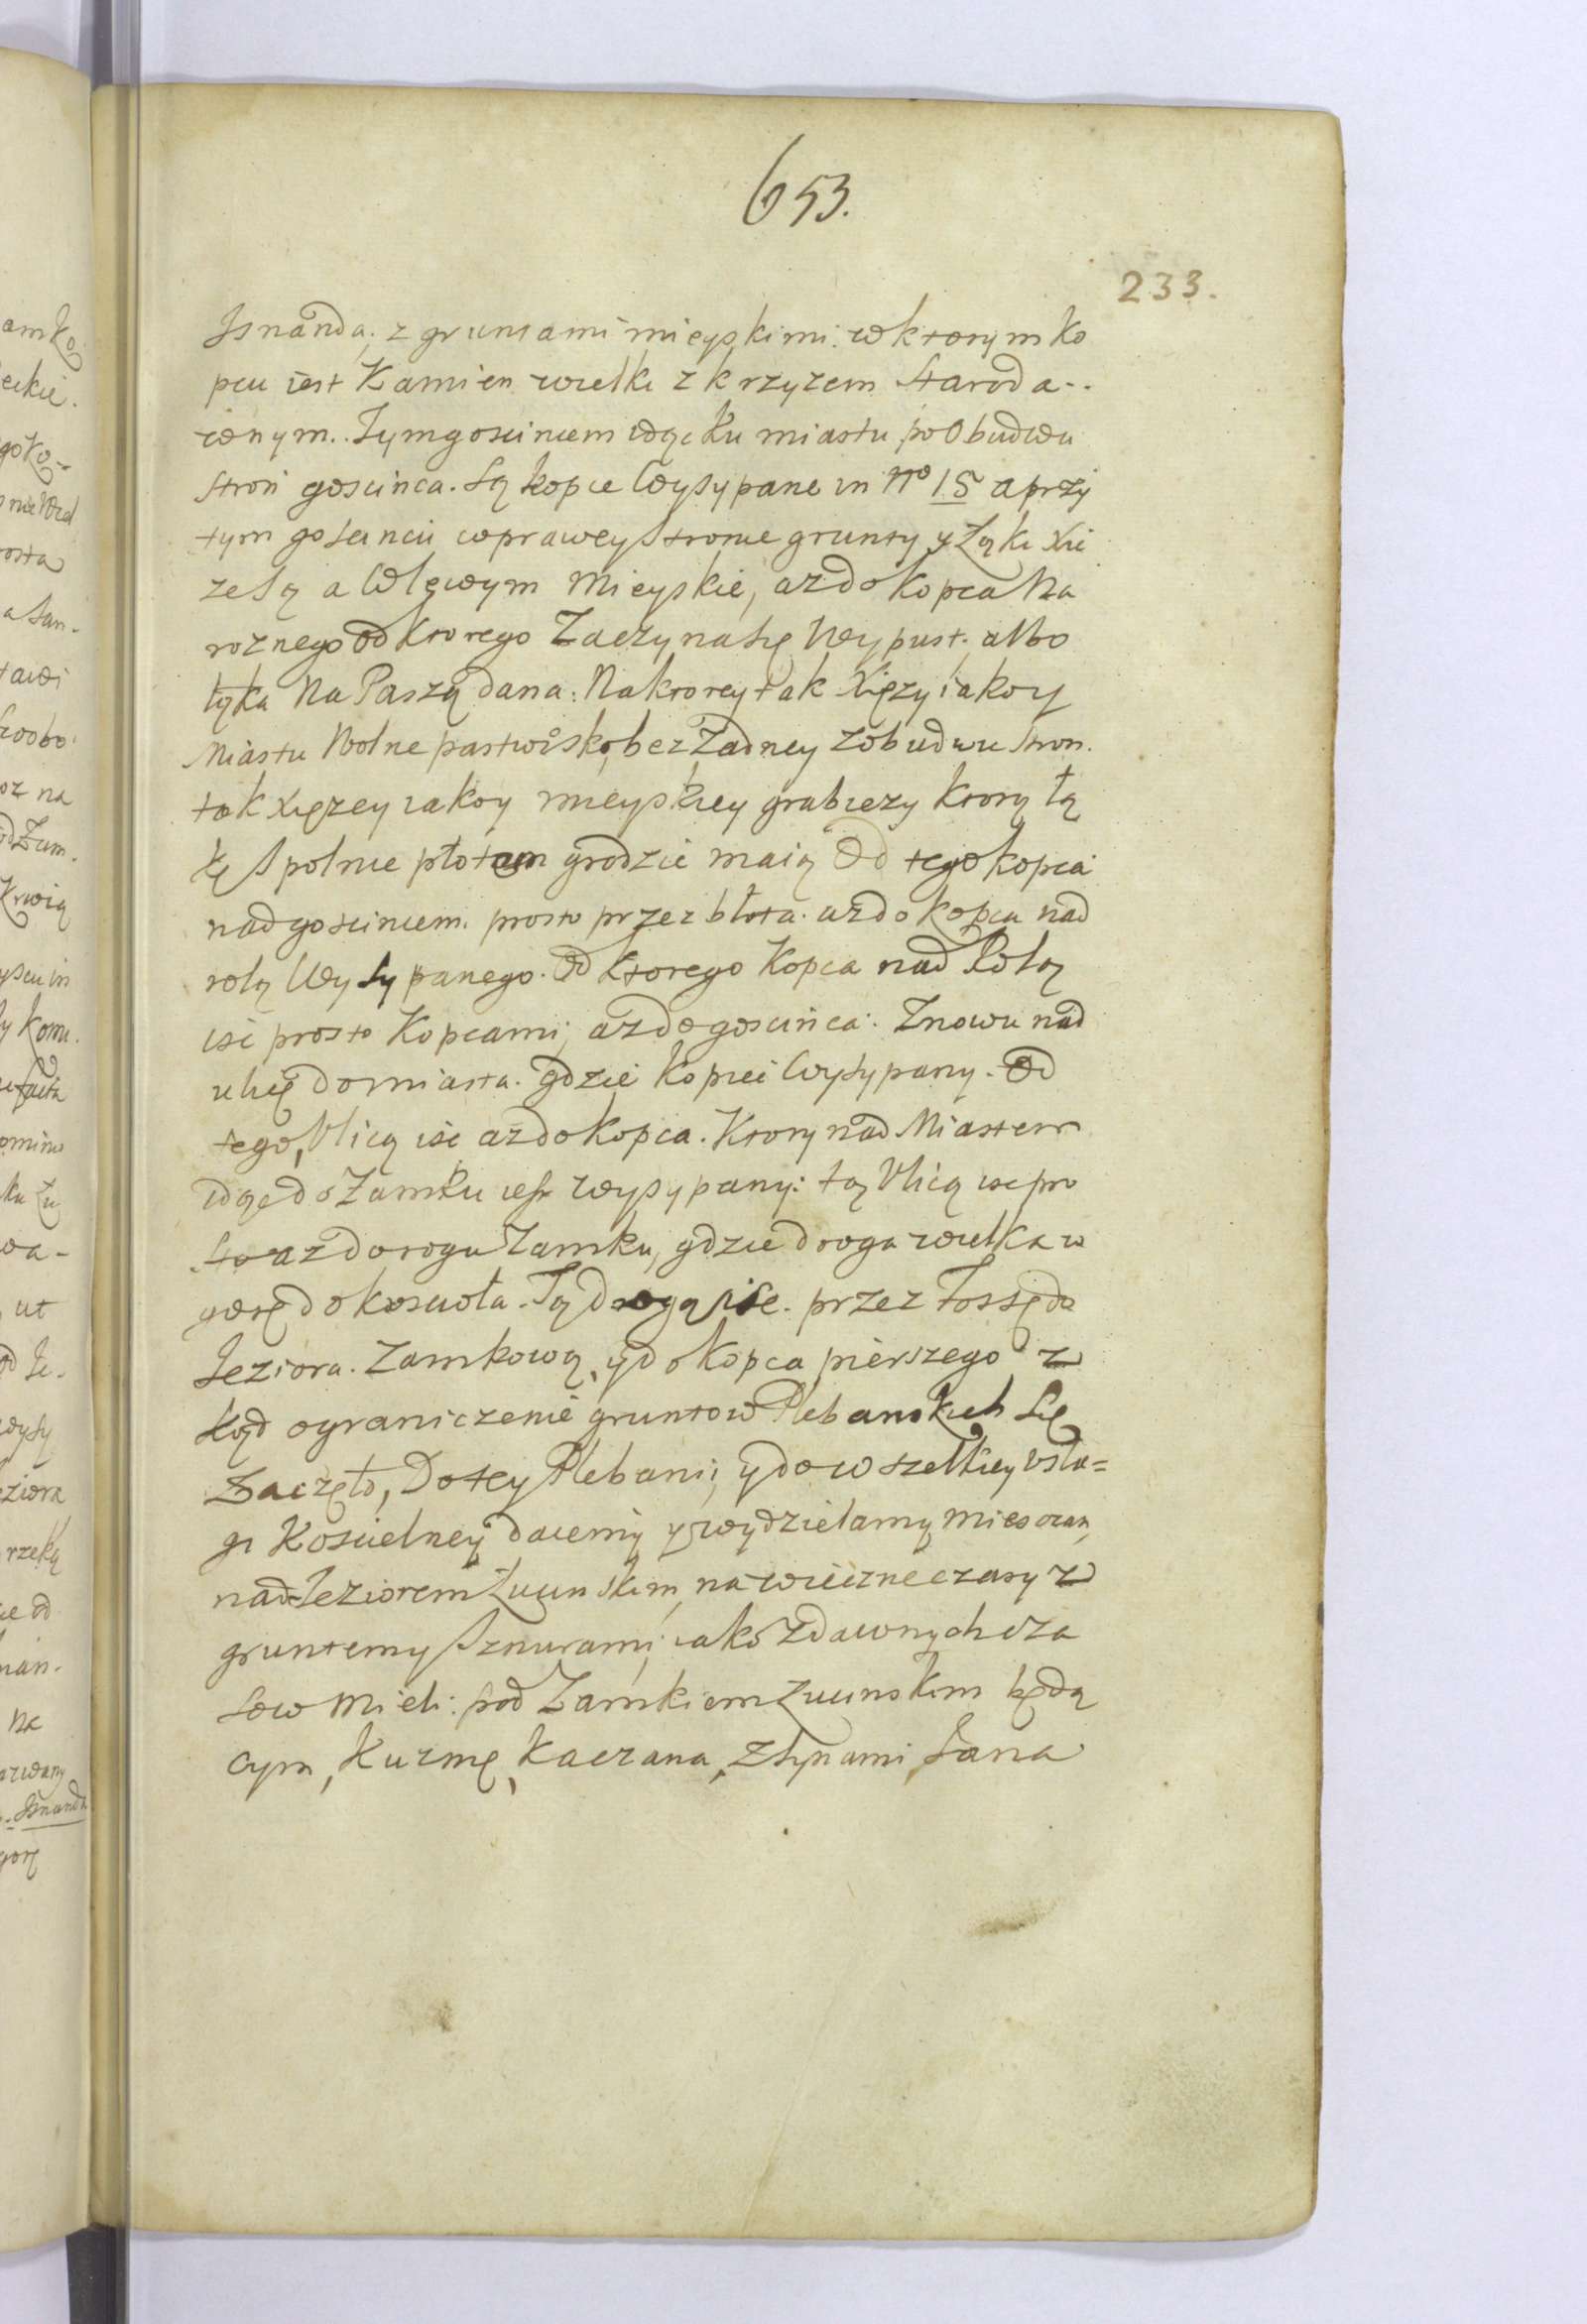 653.
233.
Isnanda. z gruntami mieyskimi. w ktorym ko
pcu iest Kamien wielki z krzyzem staroda..
wnym. Tym goscincem idąc ku miastu po obudwu
stron goscinca. Są kopce wysypane in Nro 15 a przy
tym goscincu w prawey stronie grunty y Łąki Xię
ze są a w lewym Mieyskie, az do kopca Na
roznego od ktorego Zaczyna się wypust. albo
łąka Na Paszą dana: Na ktorey tak Xięzy iako y
Miastu Wolne pastwisko, bez Zadney z obudwu stron.
tak xięzey iako y mieyskiey grabiezy ktorą łą
kę spolnie płotem grodzić maią Od tego kopca
nad goscincem. prosto przez błota. az do kopca nad
rolą wysypanego. Od ktorego Kopca nad Rolą
iść prosto Kopcami, az do goscinca. Znowu nad
ulicę do miasta. gdzie kopiec wysypany. Od
tego, Vlicą iść az do kopca. Ktory nad Miastem
idąc do Zamku iest wysypany: tą Vlicą isc pro
sto az do rogu Zamku, gdzie droga wielka w
gorę do koscioła. Tą drogą isc. przez fossę do
Jeziora. Zamkową, y do kopca pierszego z
kąd ograniczenie gruntow Plebanskich się
Zaczęło, Do tey Plebanii, y do wszelkiey vsłu=
gi Koscielney daiemy y wydzielamy mieszczan,
nad Jeziorem na wieczne czasy z
gruntem y sznurami, iako z dawnych cza
sow mieli: pod Zamkiem będą
cym, Kuzmę, Kaczana, z synami, Jana